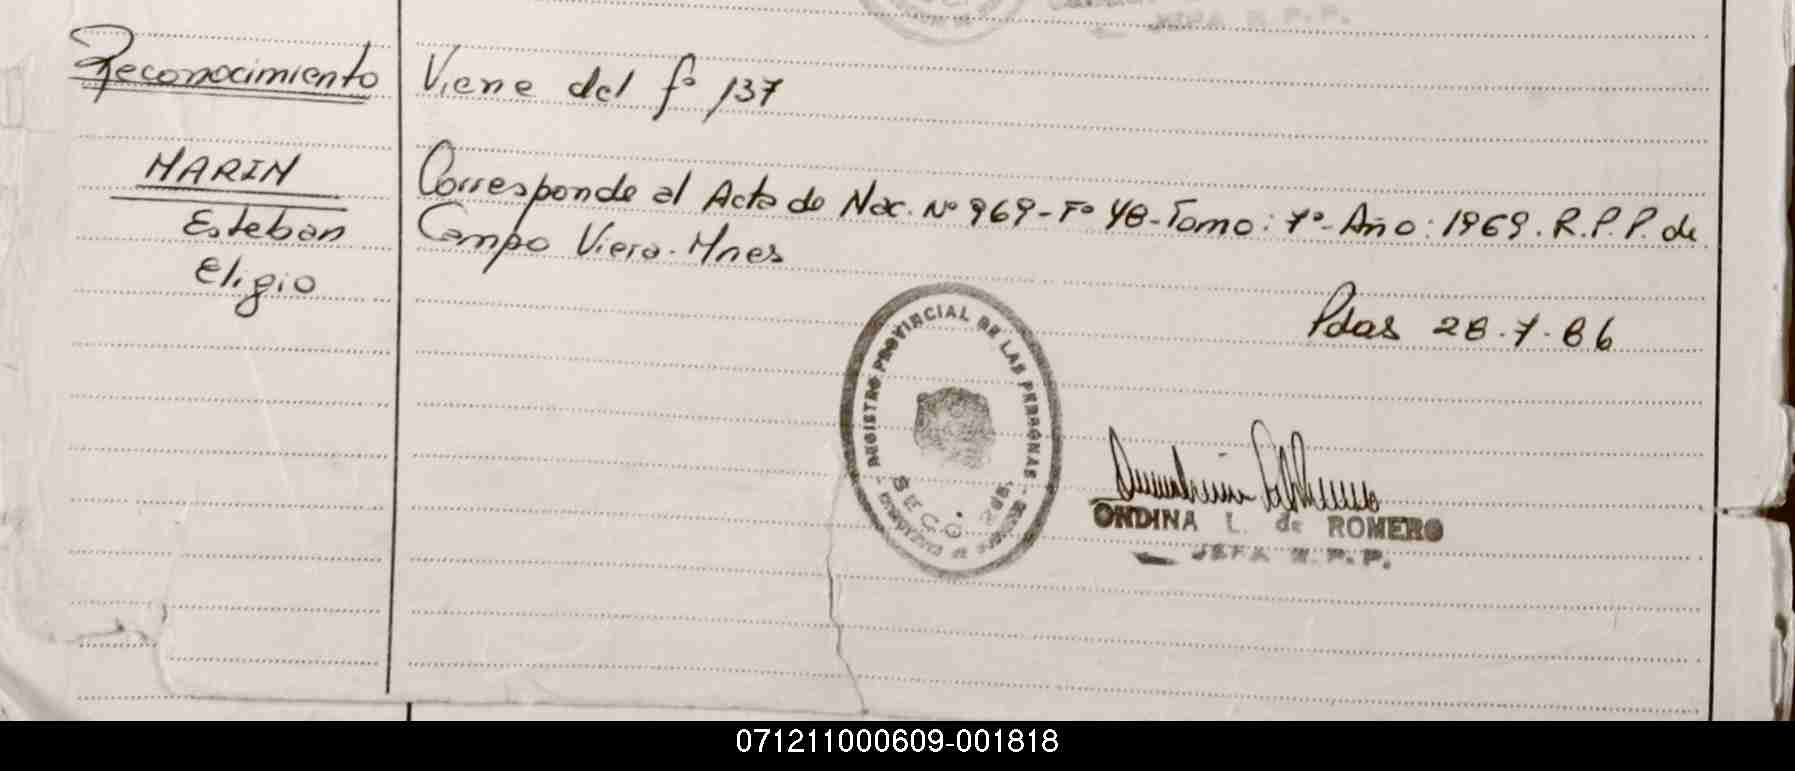 Reconocimiento
Viene del fº 137
MARIN
Esteban
Eligio
Corresponde al Acta de Nac. Nº 969-Fº 48-Tomo: 1º-Año: 1969. R.P.P. de
Campo Viera-Mnes
Pdas 28.7.86
REGISTRO PROVINCIAL DE LAS PERSONAS
ONDINA L. de ROMERO
JEFA R.P.P.
071211000609-001818